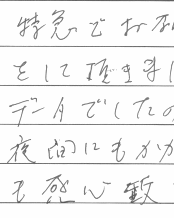 特急でお
をして頂きまし
データでしたの
夜間にもかか
も感心致